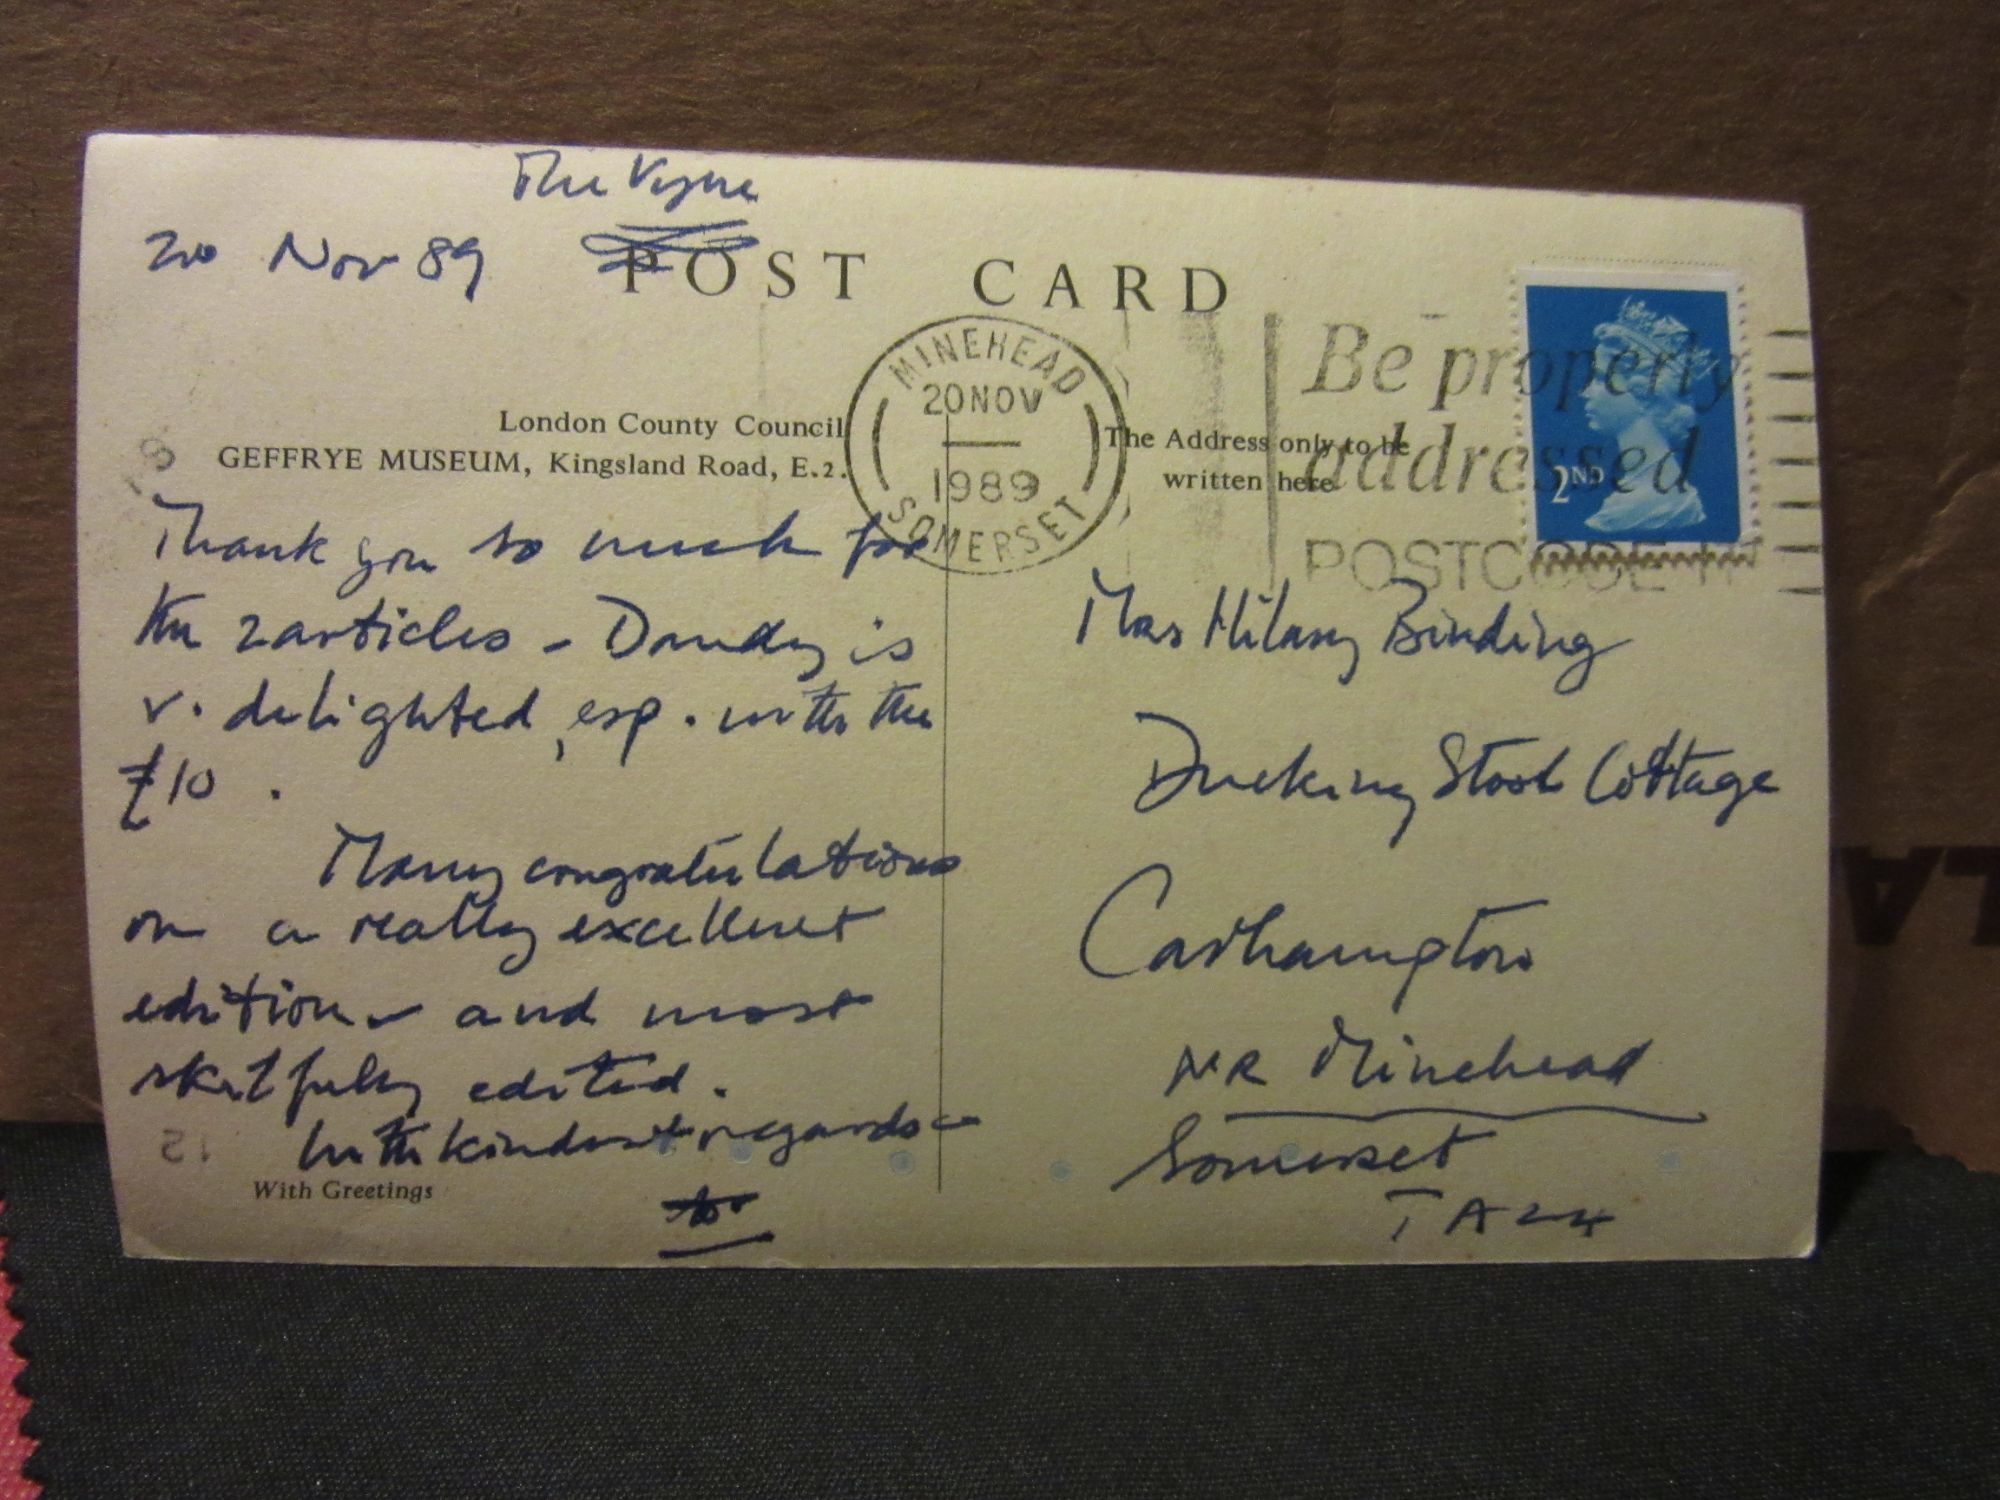 The Vyne
20 Nov 89
POST CARD
MINEHEAD
20 NOV
1989
SOMERSET
Be properly
addressed
POSTCODE IT
2ND
London County Council
GEFFRYE MUSEUM, Kingsland Road, E.2.
The Address only to be
written here
Thank you so much for
the 2 articles - Dandy is
v. delighted, esp. with the
£10.
Many congratulations
on a really excellent
edition - and most
skilfully edited.
With kindest regards
With Greetings
Mrs Hilary Binding
Ducking Stool Cottage
Carhampton
NR Minehead
Somerset
TA24